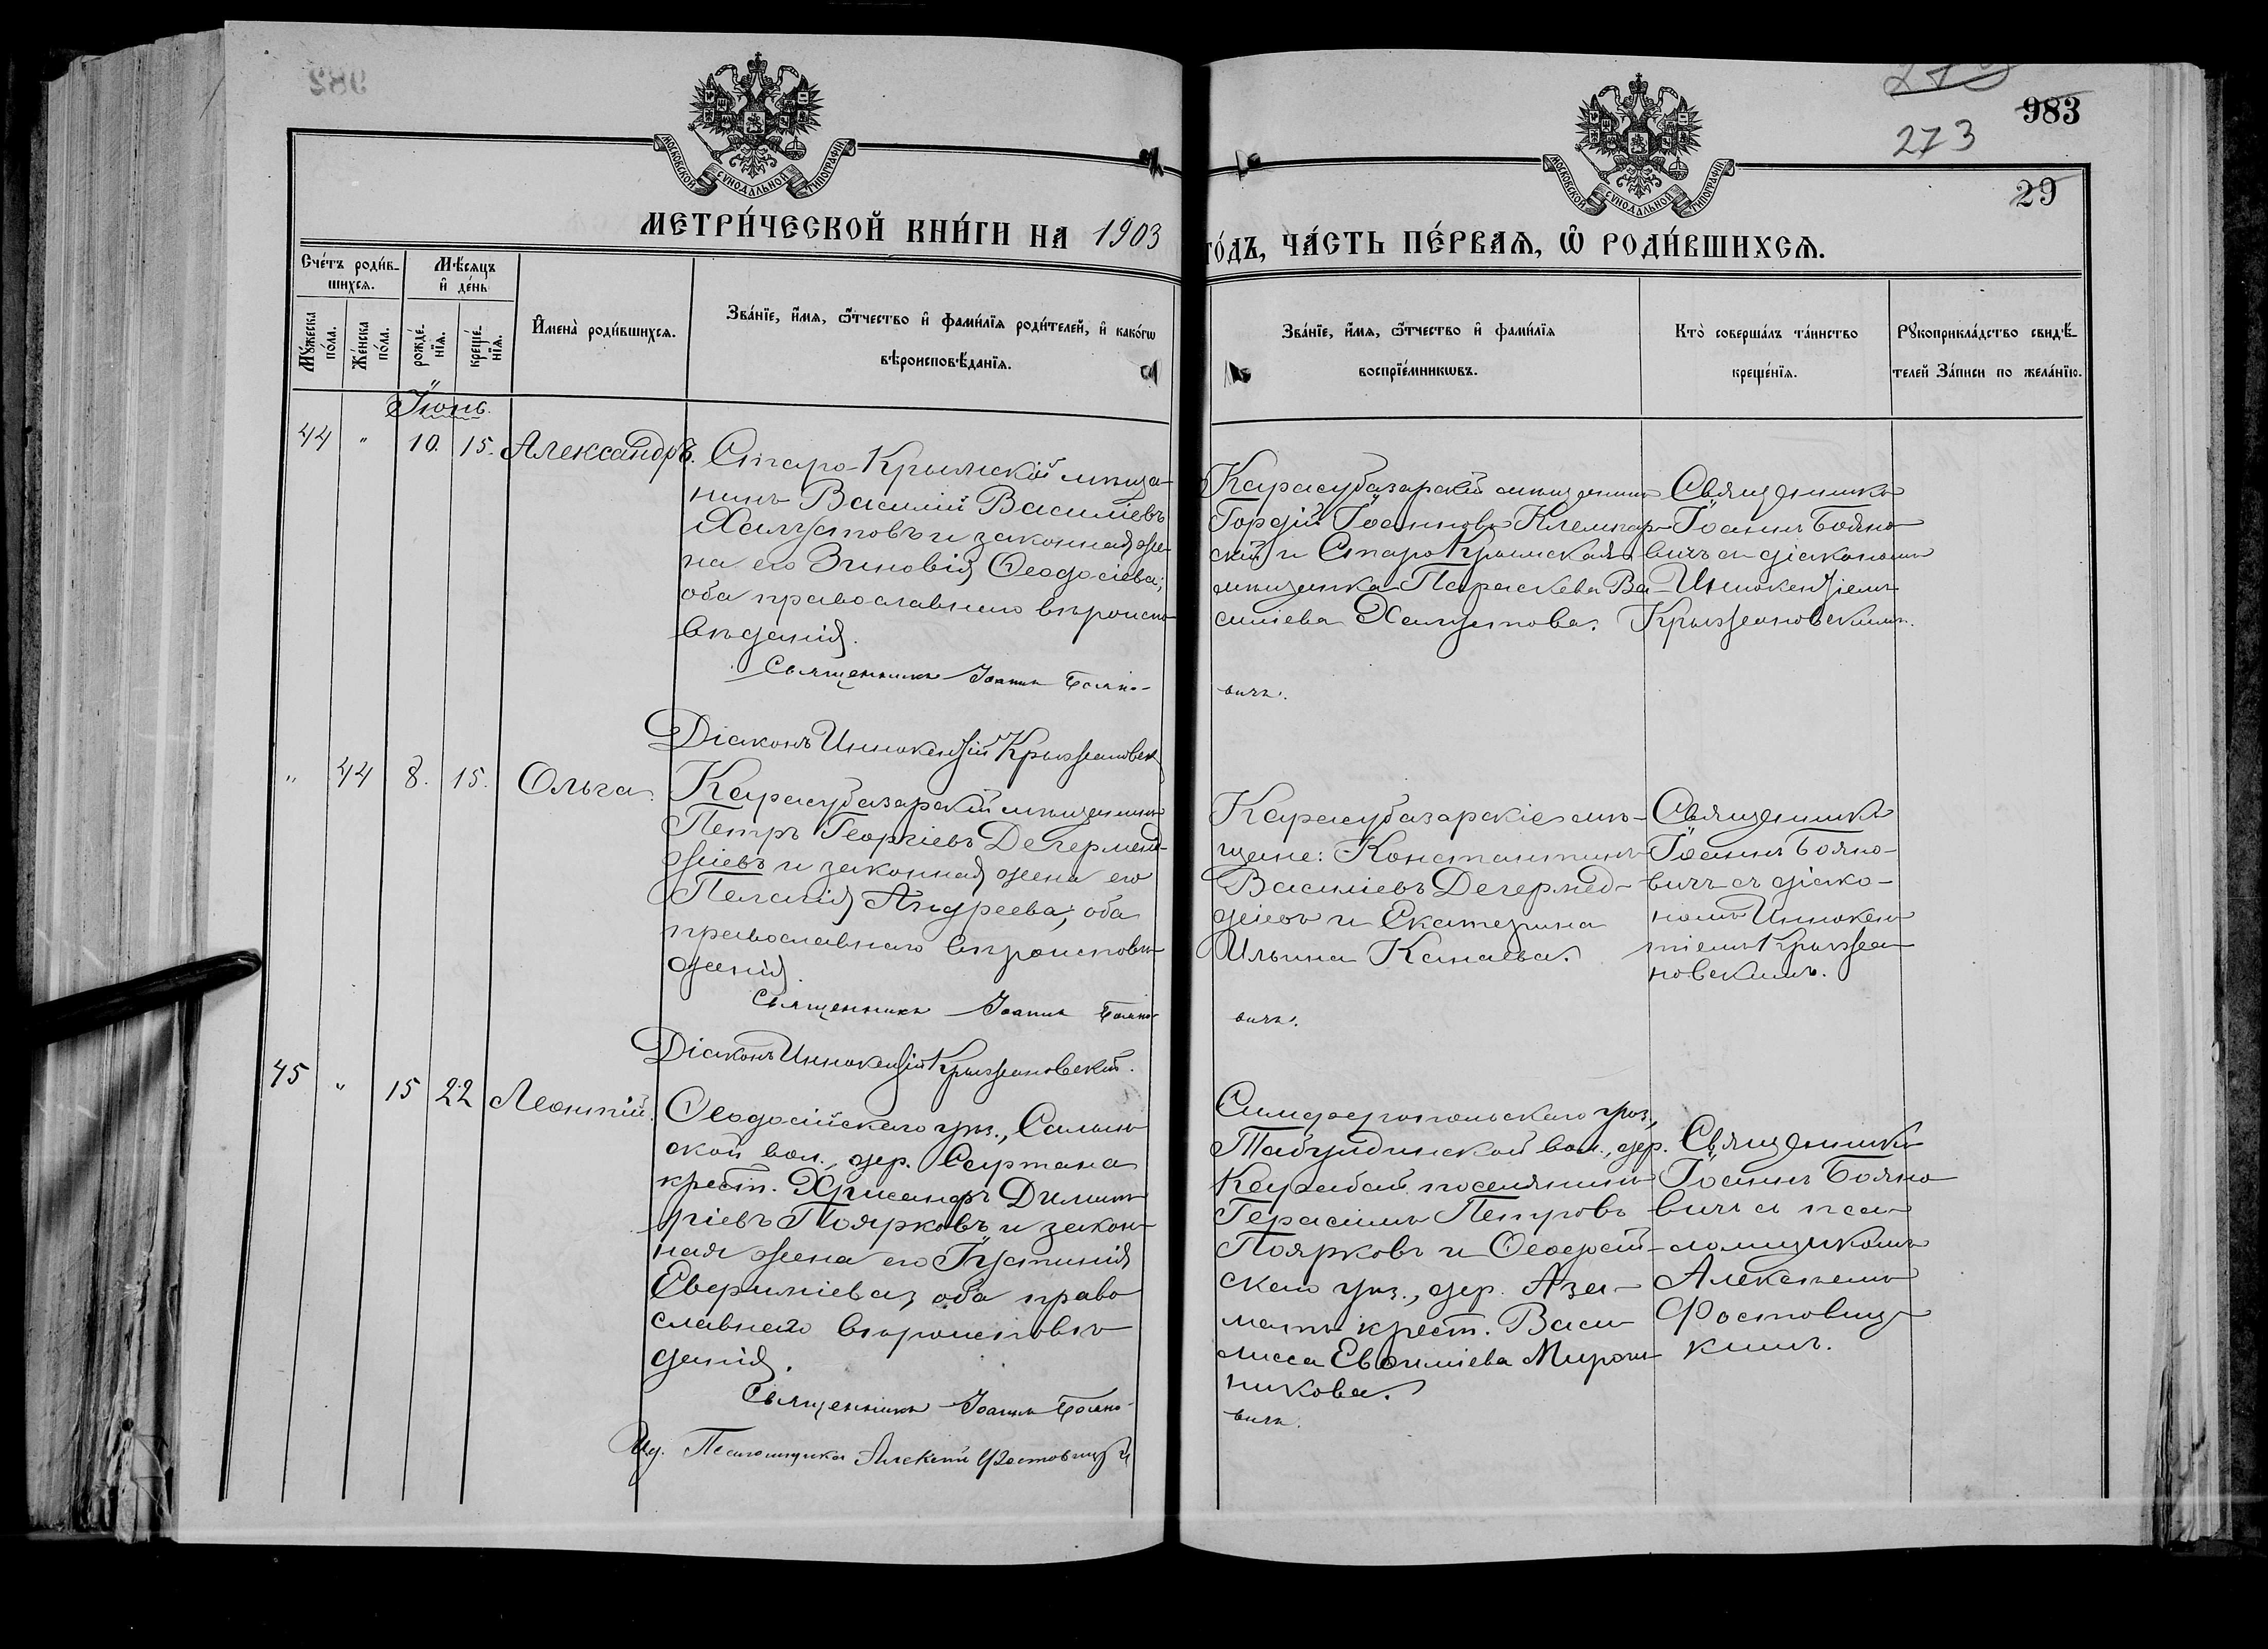 982
273
983
273
29
МОСКОВСКОЙ СѴНОДАЛЬНОЙ ТИПОГРАФІИ
МОСКОВСКОЙ СѴНОДАЛЬНОЙ ТИПОГРАФІИ
МЕТРИ́ЧЕСКОЙ КНИ́ГИ НА 1903
ГО́ДЪ, ЧА́СТЬ ПЕ́РВАѦ, Ѽ РОДИ́ВШИХСѦ.
Сче́тъ роди́в-
шихсѧ.
Мѣ́сѧцъ
и҆ де́нь
Мꙋ́жеска
по́ла.
Же́нска
по́ла.
рожде́-
нїѧ.
креще́-
нїѧ.
И҆мена̀ роди́вшихсѧ.
Зва́нїе, и҆́мѧ, ѻ҆́тчество и҆ фами́лїѧ роди́телей, и҆ како́гѡ
вѣроисповѣ́данїѧ.
Зва́нїе, и҆́мѧ, ѻ҆́тчество и҆ фами́лїѧ
воспрїе́мникѡвъ.
Кто̀ соверша́лъ та́инство
креще́нїѧ.
Рꙋкоприкла́дство свидѣ́-
телей За́писи по жела́нїю.
Іюнь.
44 " 10. 15. Александръ.
Старо-Крымскій мѣща-
нинъ Василій Василіевъ
Халустовъ и законная же-
на его Зиновія Ѳеодосіева;
оба православнаго вѣроиспо-
вѣданія.
Священникъ Іоаннъ Бояно-
вичъ.
Діаконъ Иннокентій Крыжановск
Карасубазарскій мѣщанинъ
Гордій Іоанновъ Клемпар-
скій и Старо Крымская
мѣщанка Параскева Ва-
силіева Халустова.
Священникъ
Іоаннъ Бояно
вичъ съ діакономъ
Иннокентіемъ
Крыжановскимъ.
" 44 8. 15. Ольга.
Карасубазарскій мѣщанинъ
Петръ Георгіевъ Дегермен-
джіевъ и законная жена его
Пелагія Андреева; оба
православнаго вѣроисповѣ-
данія.
Священникъ Іоаннъ Бояно-
вичъ.
Діаконъ Иннокентій Крыжановскій.
Карасубазарскіе мѣ-
щане: Константинъ
Василіевъ Дегермед-
жіевъ и Екатерина
Ильина Канаева.
Священникъ
Іоаннъ Бояно-
вичъ съ діако-
номъ Иннокен
тіемъ Крыжа
новскимъ.
45 " 15 22 Леонтій.
Ѳеодосійскаго уѣз., Салын-
ской вол., дер. Сартана
крест. Хрисанфъ Димит-
ріевъ Поярковъ и закон-
ная жена его Іустинія
Евфиміева, оба право
славнаго вѣроисповѣ-
данія.
Священникъ Іоаннъ Бояно-
вичъ.
Ид. Псаломщика Алексій Фостовицкій
Симферопольскаго уѣз.,
Табулдинской вол., дер.
Карабай поселянинъ
Герасимъ Петровъ
Поярковъ и Ѳеодосій-
скаго уѣз., дер. Аза-
матъ крест. Васи-
лисса Евфиміева Мирош-
никова.
Священникъ
Іоаннъ Бояно
вичъ съ пса-
ломщикомъ
Алексіемъ
Фостовиц-
кимъ.